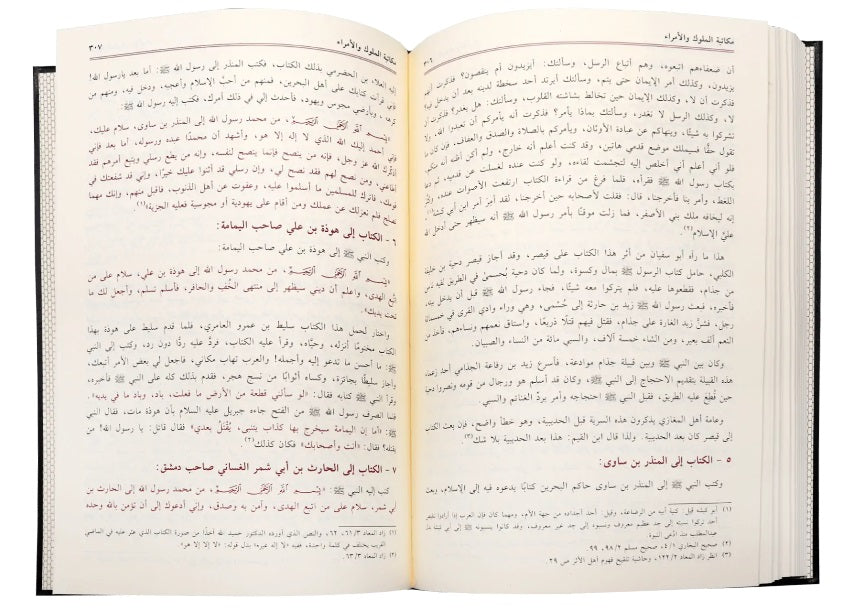 مكاتبة الملوك والأمراء
٣٠٦
أن ضعفاءهم اتبعوه، وهم أتباع الرسل، وسألتك: أيزيدون أم ينقصون؟ فذكرت أنهم
يزيدون، وكذلك أمر الإيمان حتى يتم، وسألتك أيرتد أحد سخطة لدينه بعد أن يدخل فيه؟
فذكرت أن لا، وكذلك الإيمان حين تخالط بشاشته القلوب، وسألتك: هل يغدر؟ فذكرت أن
لا، وكذلك الرسل لا تغدر، وسألتك بماذا يأمر؟ فذكرت أنه يأمركم أن تعبدوا الله، ولا
تشركوا به شيئًا، وينهاكم عن عبادة الأوثان، ويأمركم بالصلاة والصدق والعفاف، فإن كان ما
تقول حقًّا فسيملك موضع قدمي هاتين، وقد كنت أعلم أنه خارج، ولم أكن أظنه أنه منكم،
فلو أني أعلم أني أخلص إليه لتجشمت لقاءه، ولو كنت عنده لغسلت عن قدميه، ثم دعا
بكتاب رسول الله ﷺ فقرأه، فلما فرغ من قراءة الكتاب ارتفعت الأصوات عنده، وكثر
اللغط، وأمر بنا فأخرجنا، قال: فقلت لأصحابه حين أخرجنا، لقد أمِرَ أمر ابن أبي كبشة(١)
إنه ليخافه ملك بني الأصفر، فما زلت موقنًا بأمر رسول الله ﷺ أنه سيظهر حتى أدخل الله
عليّ الإسلام(٢).
هذا ما رآه أبو سفيان من أثر هذا الكتاب على قيصر، وقد أجاز قيصر دحية بن خليفة
الكلبي، حامل كتاب الرسول ﷺ بمال وكسوة، ولما كان دحية بحُسمى في الطريق لقيه ناس
من جذام، فقطعوها عليه، فلم يتركوا معه شيئًا، فجاء رسول الله ﷺ قبل أن يدخل بيته،
فأخبره، فبعث رسول الله ﷺ زيد بن حارثة إلى حُسْمى، وهي وراء وادي القرى في خمسمائة
رجل، فشنَّ زيد الغارة على جذام، فقتل فيهم قتلًا ذريعًا، واستاق نعمهم ونساءهم، فأخذ من
النعم ألف بعير، ومن الشاء خمسة آلاف، والسبي مائة من النساء والصبيان.
وكان بين النبي ﷺ وبين قبيلة جذام موادعة، فأسرع زيد بن رفاعة الجذامي أحد زعماء
هذه القبيلة بتقديم الاحتجاج إلى النبي ﷺ، وكان قد أسلم هو ورجال من قومه ونصروا دحية
حين قُطِعَ عليه الطريق، فقبل النبي ﷺ احتجاجه وأمر بردّ الغنائم والسبي.
وعامة أهل المغازي يذكرون هذه السرية قبل الحديبية، وهو خطأ واضح، فإن بعث الكتاب
إلى قيصر كان بعد الحديبية. ولذا قال ابن القيم: هذا بعد الحديبية بلا شك(٣).
٥ - الكتاب إلى المنذر بن ساوى:
وكتب النبي ﷺ إلى المنذر بن ساوى حاكم البحرين كتابًا يدعوه فيه إلى الإسلام، وبعث
(١) أبو كبشة قيل: كنية أبيه من الرضاعة، وقيل: أحد أجداده من جهة الأم، ومهما كان فإن العرب إذا أرادوا تنقيص
أحد تركوا نسبته إلى جد عظيم معروف ونسبوه إلى جد غير معروف، وقد كانوا ينسبونه ﷺ إلى أبي كبشة مذ
عبدالمطلب منذ ادّعى النبوة.
(٢) صحيح البخاري ٤/١، صحيح مسلم ٩٨/٢، ٩٩
(٣) انظر زاد المعاد ١٢٢/٢، وحاشية تلقيح فهوم أهل الأثر ص ٢٩.
مكاتبة الملوك والأمراء
٣٠٧
إليه العلاء بن الحضرمي بذلك الكتاب، فكتب المنذر إلى رسول الله ﷺ: أما بعد يارسول الله!
فإني قرأت كتابك على أهل البحرين، فمنهم من أحبَّ الإسلام وأعجبه، ودخل فيه، ومنهم من
كرهه، وبأرضي مجوس ويهود، فأحدث إلي في ذلك أمرك، فكتب إليه رسول الله ﷺ:
«بسم الله الرحمن الرحيم، من محمد رسول الله إلى المنذر بن ساوى، سلام عليك،
فإني أحمد إليك الله الذي لا إله إلا هو، وأشهد أن محمدًا عبده ورسوله، أما بعد فإني
أذكرك الله عز وجل، فإنه من ينصح فإنما ينصح لنفسه، وإنه من يطع رسلي ويتبع أمرهم فقد
أطاعني، ومن نصح لهم فقد نصح لي، وإن رسلي قد أثنوا عليك خيرًا، وإني قد شفعتك في
قومك، فاترك للمسلمين ما أسلموا عليه، وعفوت عن أهل الذنوب، فاقبل منهم، وإنك مهما
تصلح فلم نعزلك عن عملك ومن أقام على يهودية أو مجوسية فعليه الجزية»(١).
٦ - الكتاب إلى هوذة بن علي صاحب اليمامة:
وكتب النبي ﷺ إلى هوذة بن علي صاحب اليمامة:
«بسم الله الرحمن الرحيم، من محمد رسول الله إلى هوذة بن علي، سلام على من
اتبع الهدى، واعلم أن ديني سيظهر إلى منتهى الخُف والحافر، فأسلم تسلم، وأجعل لك ما
تحت يديك».
واختار لحمل هذا الكتاب سليط بن عمرو العامري، فلما قدم سليط على هوذة بهذا
الكتاب مختومًا أنزله، وحيَّاه، وقرأ عليه الكتاب، فردَّ عليه ردًّا دون رد، وكتب إلى النبي
ﷺ: ما أحسن ما تدعو إليه وأجمله! والعرب تهاب مكاني، فاجعل لي بعض الأمر أتبعك،
وأجاز سليطًا بجائزة، وكساه أثوابًا من نسج هجر، فقدم بذلك كله على النبي ﷺ فأخبره،
وقرأ النبي ﷺ كتابه فقال: «لو سألني قطعة من الأرض ما فعلت، باد، وباد ما في يديه».
فلما انصرف رسول الله ﷺ من الفتح جاءه جبريل عليه السلام بأن هوذة مات، فقال النبي
ﷺ: «أما إن اليمامة سيخرج بها كذاب يتنبى، يُقْتَلُ بعدي» فقال قائل: يا رسول الله! من
يقتله؟ فقال: «أنت وأصحابك» فكان كذلك(٢).
٧ - الكتاب إلى الحارث بن أبي شمر الغساني صاحب دمشق:
كتب إليه النبي ﷺ: «بسم الله الرحمن الرحيم، من محمد رسول الله إلى الحارث بن
أبي شمر، سلام على من اتبع الهدى، وآمن به وصدق، وإني أدعوك إلى أن تؤمن بالله وحده
(١) زاد المعاد ٦١/٣، ٦٢، والنص الذي أورده الدكتور حميد الله أخذًا من صورة الكتاب الذي عثر عليه في الماضي
القريب يختلف في كلمة واحدة، ففيه «لا إله غيره» بدل قوله: «لا إله إلا هو».
(٢) زاد المعاد ٦٣/٣.